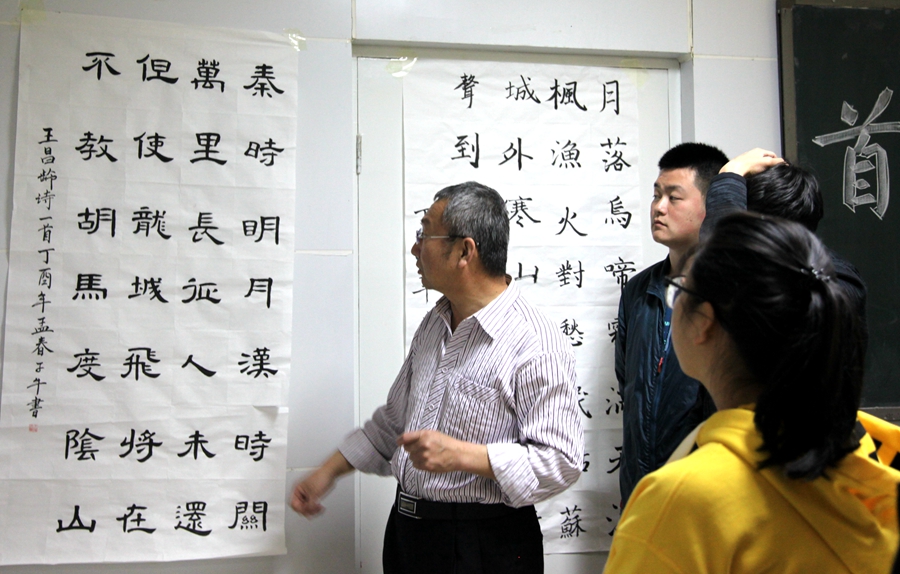 秦時明月漢時關
萬里長征人未還
但使龍城飛將在
不教胡馬度陰山
王昌龄诗一首丁酉年孟春子午書
月落烏啼霜滿天
楓漁火對愁眠蘇
城外寒山
聲到
首